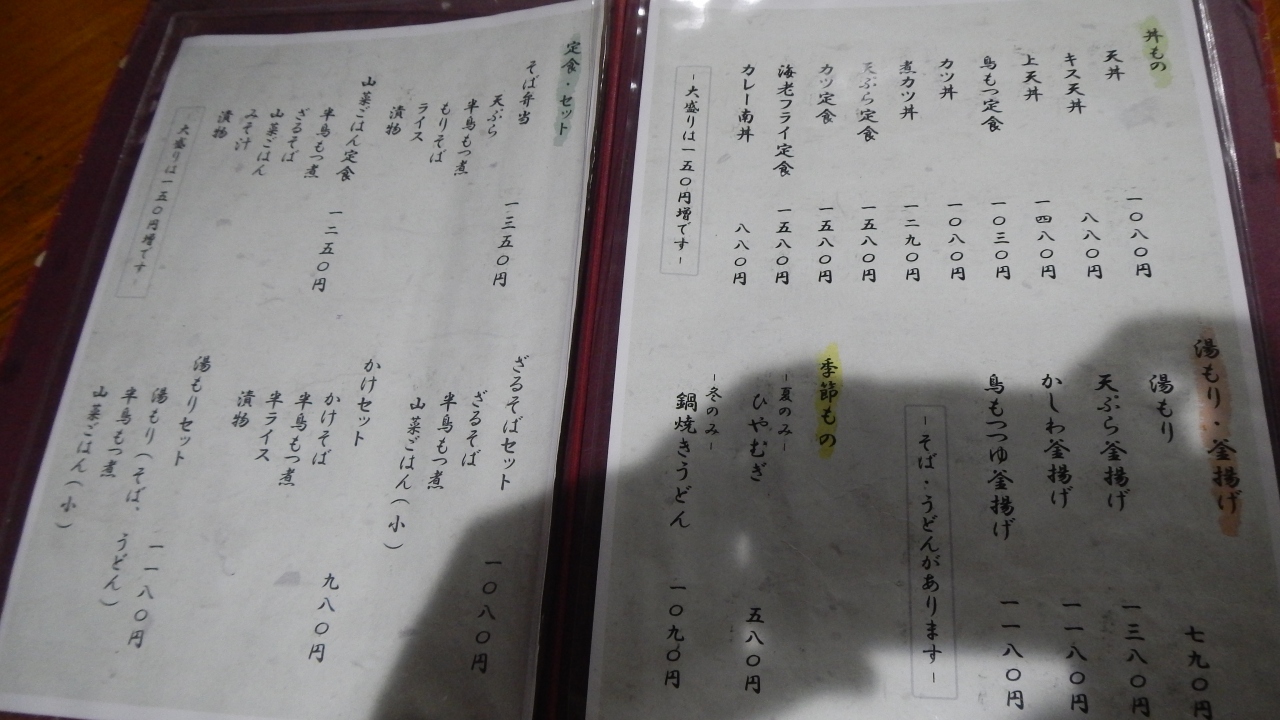 丼もの
天丼 一〇八〇円
キス天丼 八八〇円
上天丼 一四八〇円
鳥もつ定食 一〇三〇円
カツ丼 一〇八〇円
煮カツ丼 一二九〇円
天ぷら定食 一五八〇円
カツ定食 一五八〇円
海老フライ定食 一五八〇円
カレー南丼 八八〇円
－大盛りは一五〇円増です－
湯もり・釜揚げ
湯もり 七九〇円
天ぷら釜揚げ 一三八〇円
かしわ釜揚げ 一一八〇円
鳥もつつゆ釜揚げ 一一八〇円
－そば・うどんがあります－
季節もの
－夏のみ－
ひやむぎ 五八〇円
－冬のみ－
鍋焼きうどん 一〇九〇円
定食・セット
そば弁当 一三五〇円
天ぷら
半鳥もつ煮
もりそば
ライス
漬物
山菜ごはん定食 一二五〇円
半鳥もつ煮
ざるそば
山菜ごはん
みそ汁
漬物
－大盛りは一五〇円増です－
ざるそばセット 一〇八〇円
ざるそば
半鳥もつ煮
山菜ごはん（小）
かけセット 九八〇円
かけそば
半鳥もつ煮
半ライス
漬物
湯もりセット 一一八〇円
湯もり（そば、うどん）
半鳥もつ煮
山菜ごはん（小）